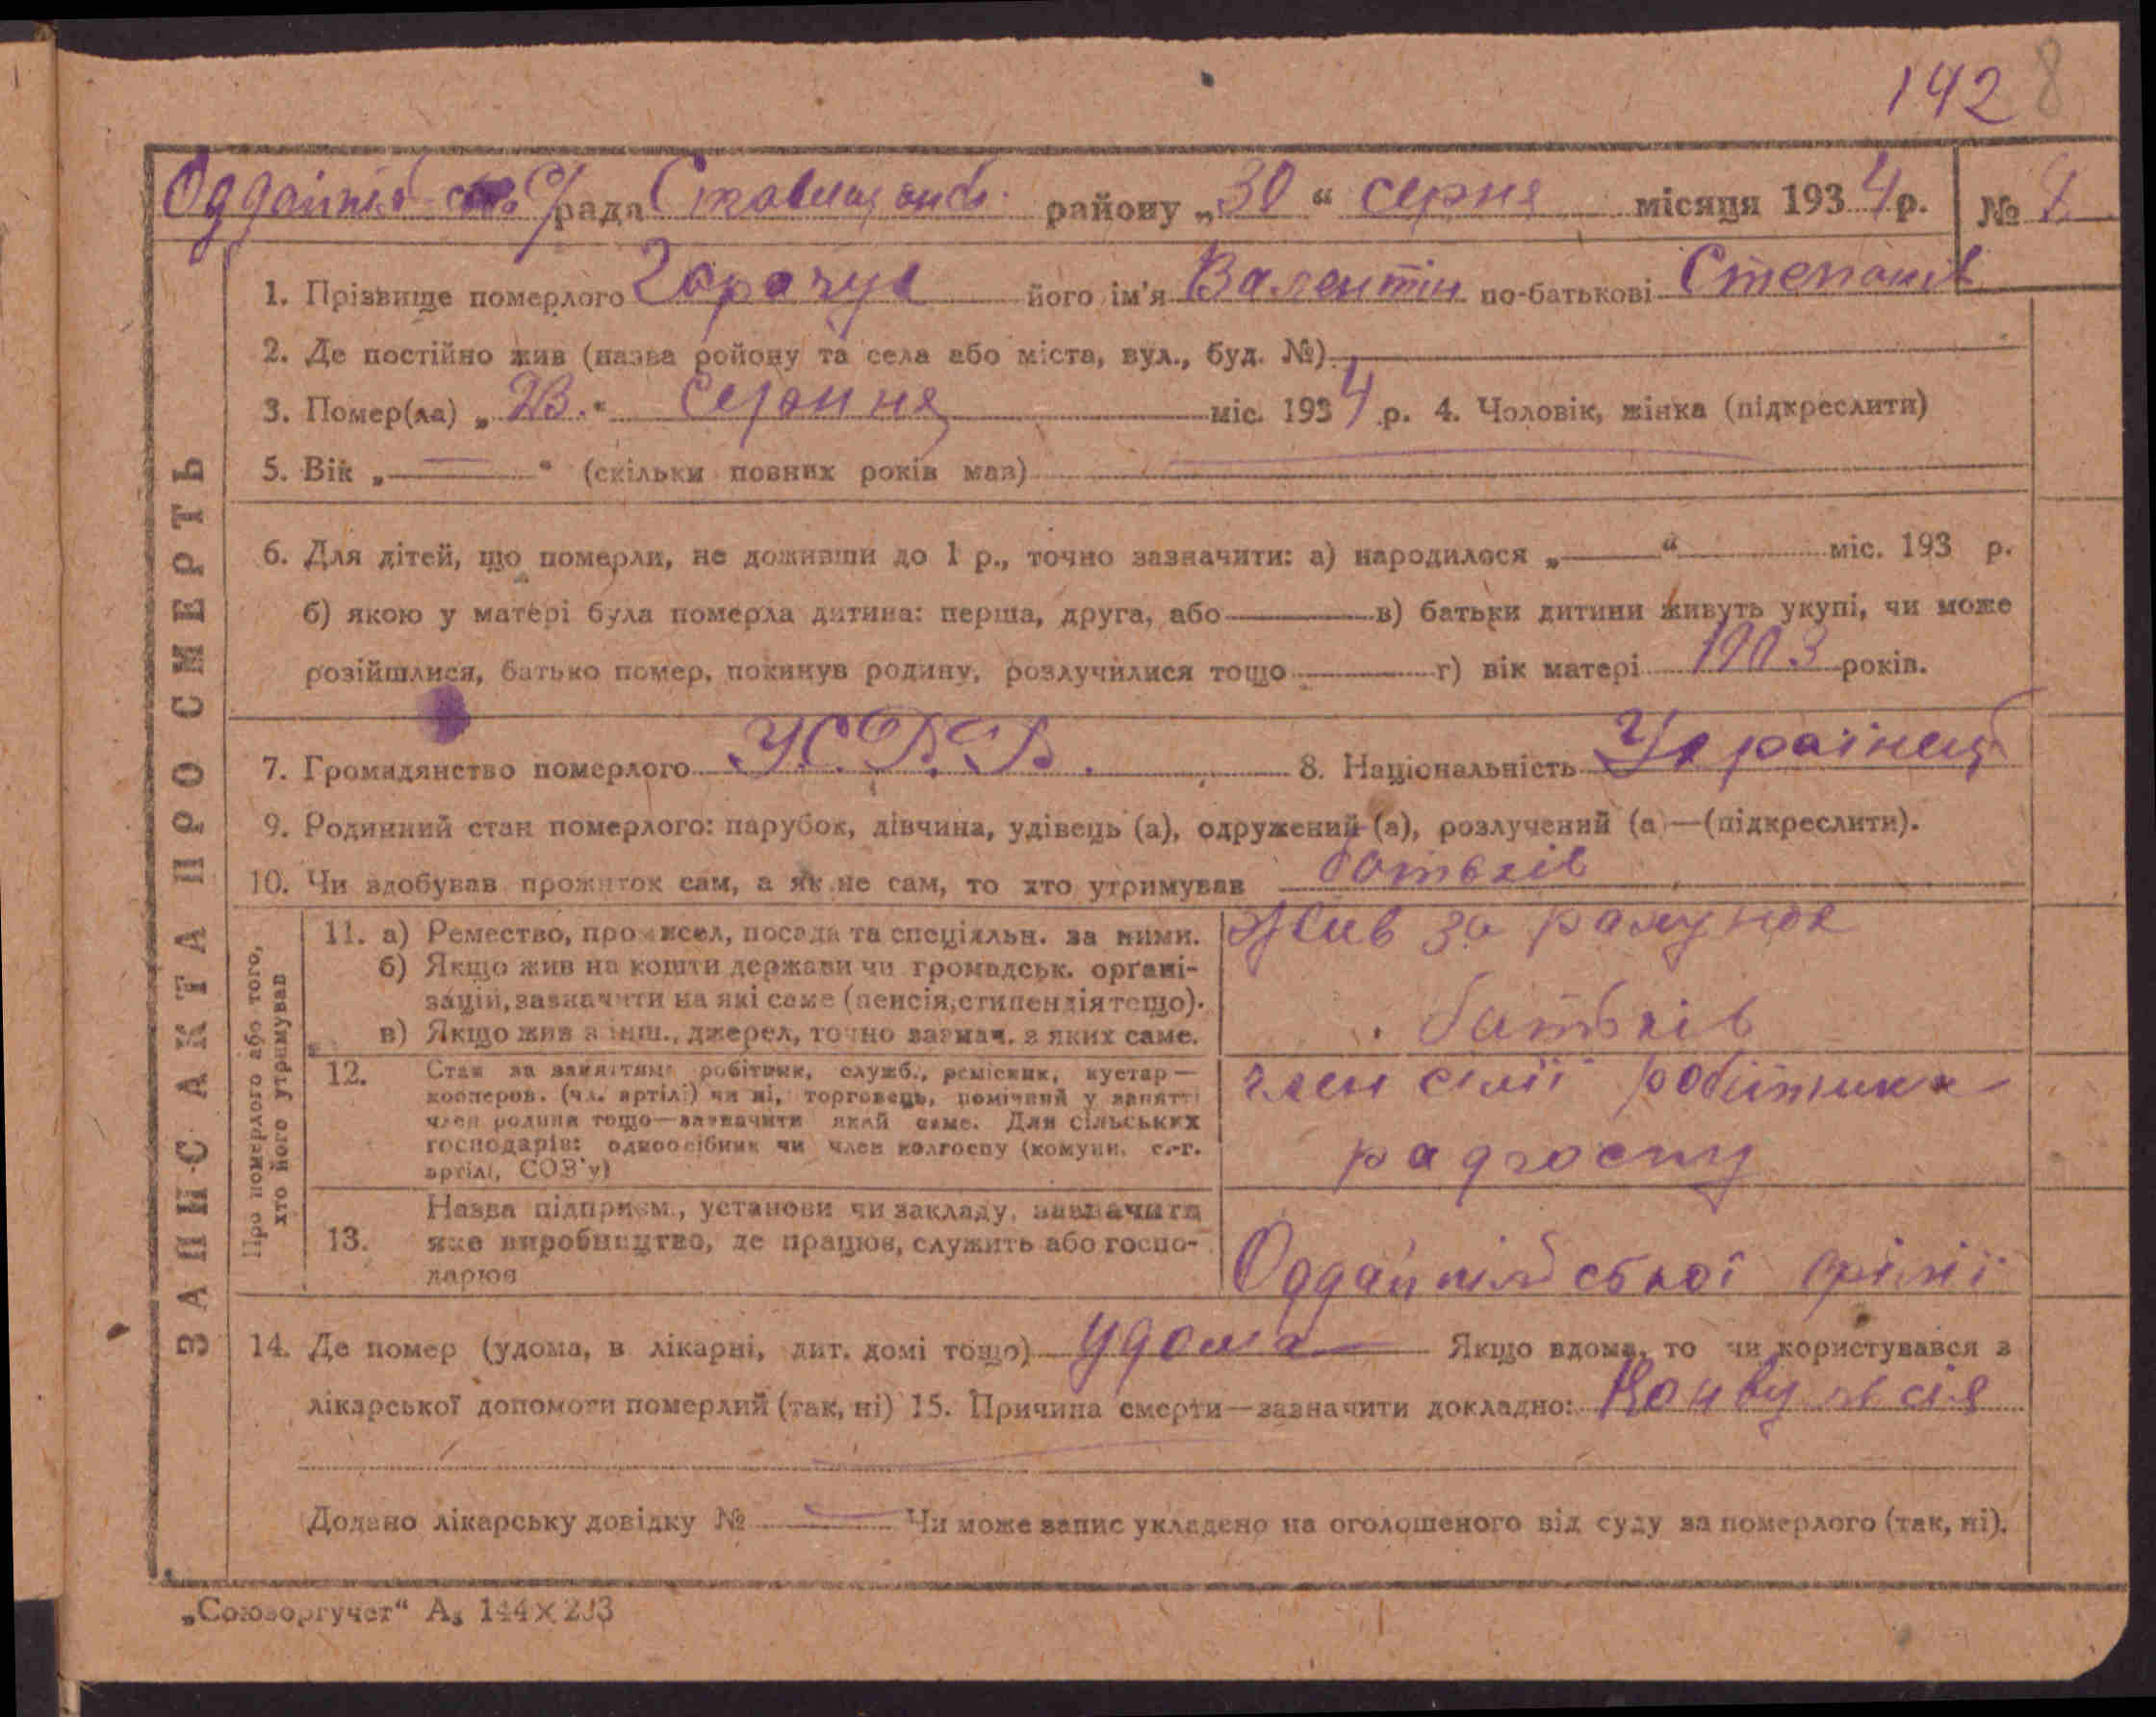 142 8
рада Ставищанськ. району „30“ серпня місяця 1934 р. №
ЗАПИС АКТА ПРО СМЕРТЬ
1. Прізвище померлого його ім'я Валентін по-батькові Степанів
2. Де постійно жив (назва ройону та села або міста, вул., буд. №)
3. Помер(ла) „ “ серпння міс. 1934 р. 4. Чоловік, жінка (підкреслити)
5. Вік „—“ (скільки повних років мав)
6. Для дітей, що померли, не доживши до 1 р., точно зазначити: а) народилося „—“ міс. 193 р.
б) якою у матері була померла дитина: перша, друга, або — в) батьки дитини живуть укупі, чи може
розійшлися, батько помер, покинув родину, розлучилися тощо — г) вік матері 1903 років.
7. Громадянство померлого У.С.Р.Р. 8. Національність Українец
9. Родинний стан померлого: парубок, дівчина, удівець (а), одружений (а), розлучений (а)—(підкреслити).
10. Чи здобував прожиток сам, а як не сам, то хто утримував батьків
Про померлого або того,
хто його утримував
11. а) Ремество, промисел, посада та спеціяльн. за ними. Жив за рахунок
б) Якщо жив на кошти держави чи громадськ. органі-
зацій, зазначити на які саме (пенсія, стипендія тощо).
батьків
в) Якщо жив з інш., джерел, точно зазнач. з яких саме.
12. Стан за заняттям: робітник, служб., ремісник, кустар— член сімї робітника
кооперов. (чл. артілі) чи ні, торговець, помічний у занятті
член родини тощо—зазначити який саме. Для сільських
господарів: одноосібник чи член колгоспу (комуни, с.-г. радгоспу
артілі, СОЗ'у)
Назва підприєм., установи чи закладу, зазначити
13. яке виробництво, де працює, служить або госпо-
дарює
14. Де помер (удома, в лікарні, дит. домі тощо) удома Якщо вдома, то чи користувався з
лікарської допомоги померлий (так, ні) 15. Причина смерти—зазначити докладно: Конвульсія
Додано лікарську довідку № — Чи може запис укладено на оголошеного від суду за померлого (так, ні).
„Союзоргучет“ А₅ 144×203